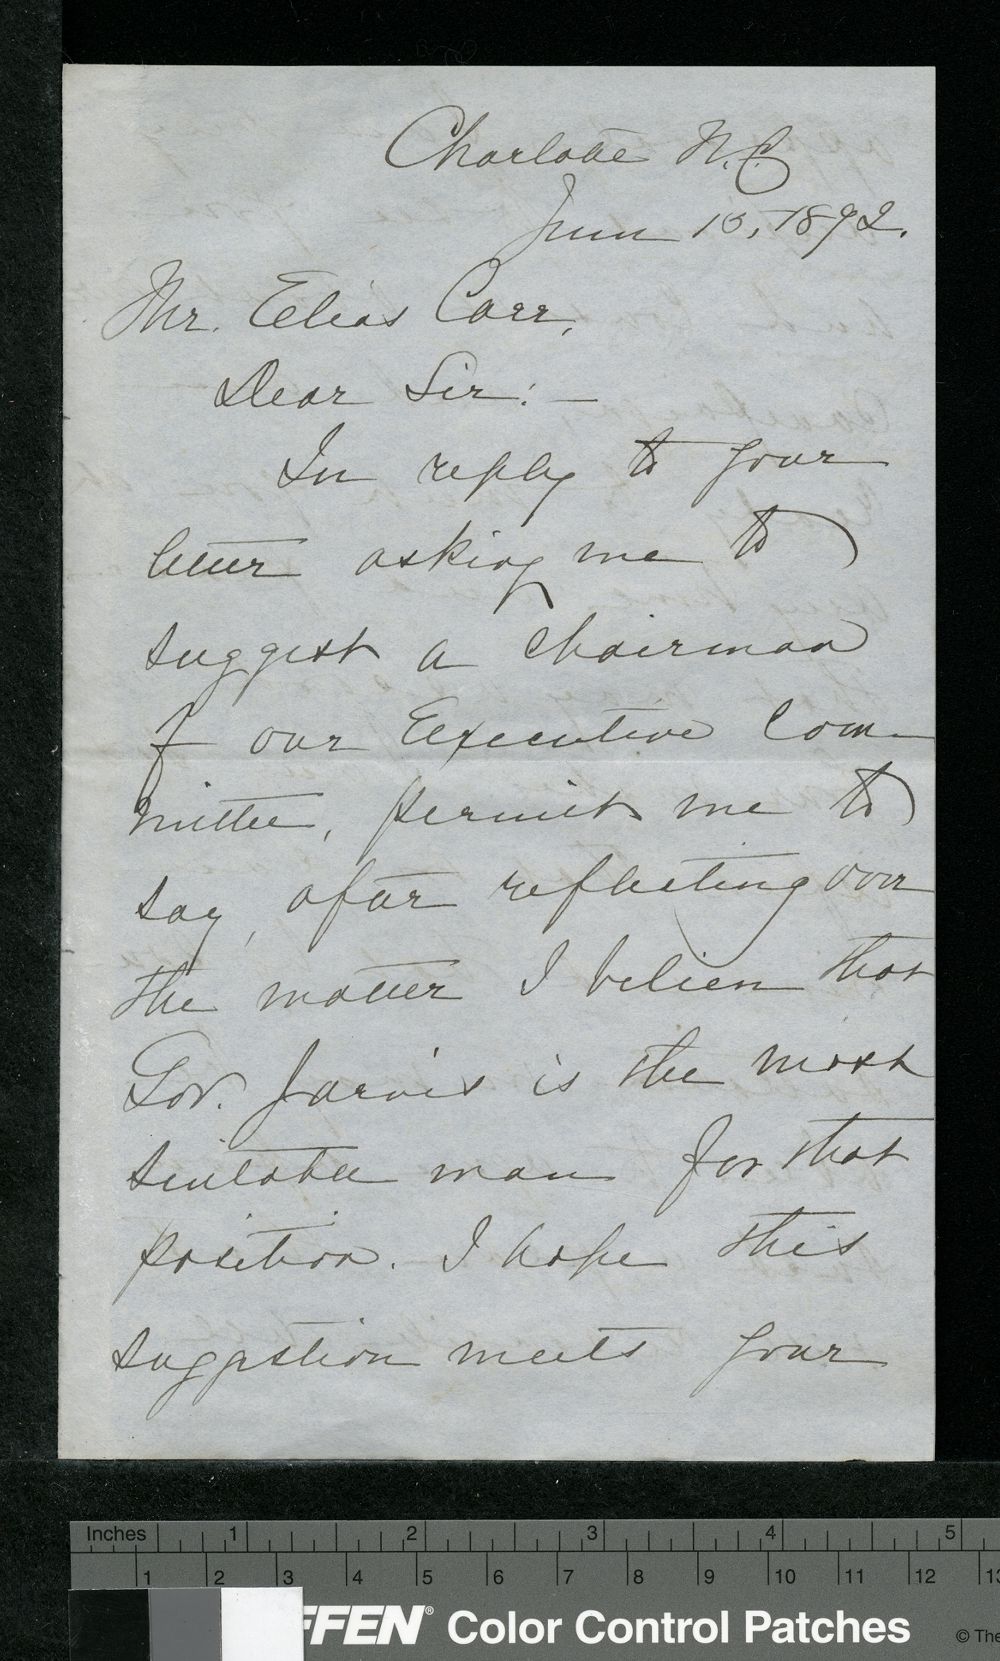 Charlotte N.C.
June 15, 1892.
Mr. Elias Carr,
Dear Sir: —
In reply to your
letter asking me to
suggest a chairman
of our Executive Com-
mittee, permit me to
say, after reflecting over
the matter I believe that
Gov. Jarvis is the most
suitable man for that
position. I hope this
suggestion meets your
Inches 1 2 3 4 5
1 2 3 4 5 6 7 8 9 10 11 12 13
FFEN® Color Control Patches © The